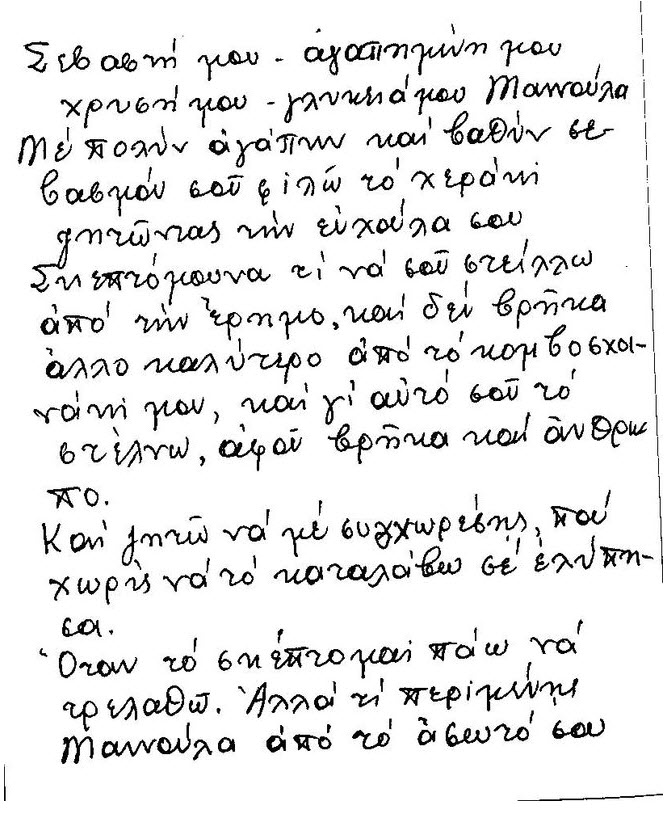 Σεβαστή μου - ἀγαπημένη μου
χρυσή μου - γλυκειά μου Μαννούλα
Μέ πολύν ἀγάπην καί βαθύν σε-
βασμόν σοῦ φιλῶ τό χεράκι
ζητῶντας τήν εὐχούλα σου
Σκεπτόμουνα τί νά σοῦ στείλλω
ἀπό τήν Ἔρημο, καί δέν βρῆκα
ἄλλο καλύτερο ἀπό τό κομβοσχοι-
νάκι μου, καί γι' αὐτό σοῦ τό
στέλνω, ἀφοῦ βρῆκα καί ἄνθρω
πο.
Καί ζητῶ νά μέ συγχωρέσης, πού
χωρίς νά τό καταλάβω σέ ἐλύπη-
σα.
Ὅταν τό σκέπτομαι πάω νά
τρελαθῶ. Ἀλλά τί περιμένης
Μαννούλα ἀπό τό ἄσωτό σου